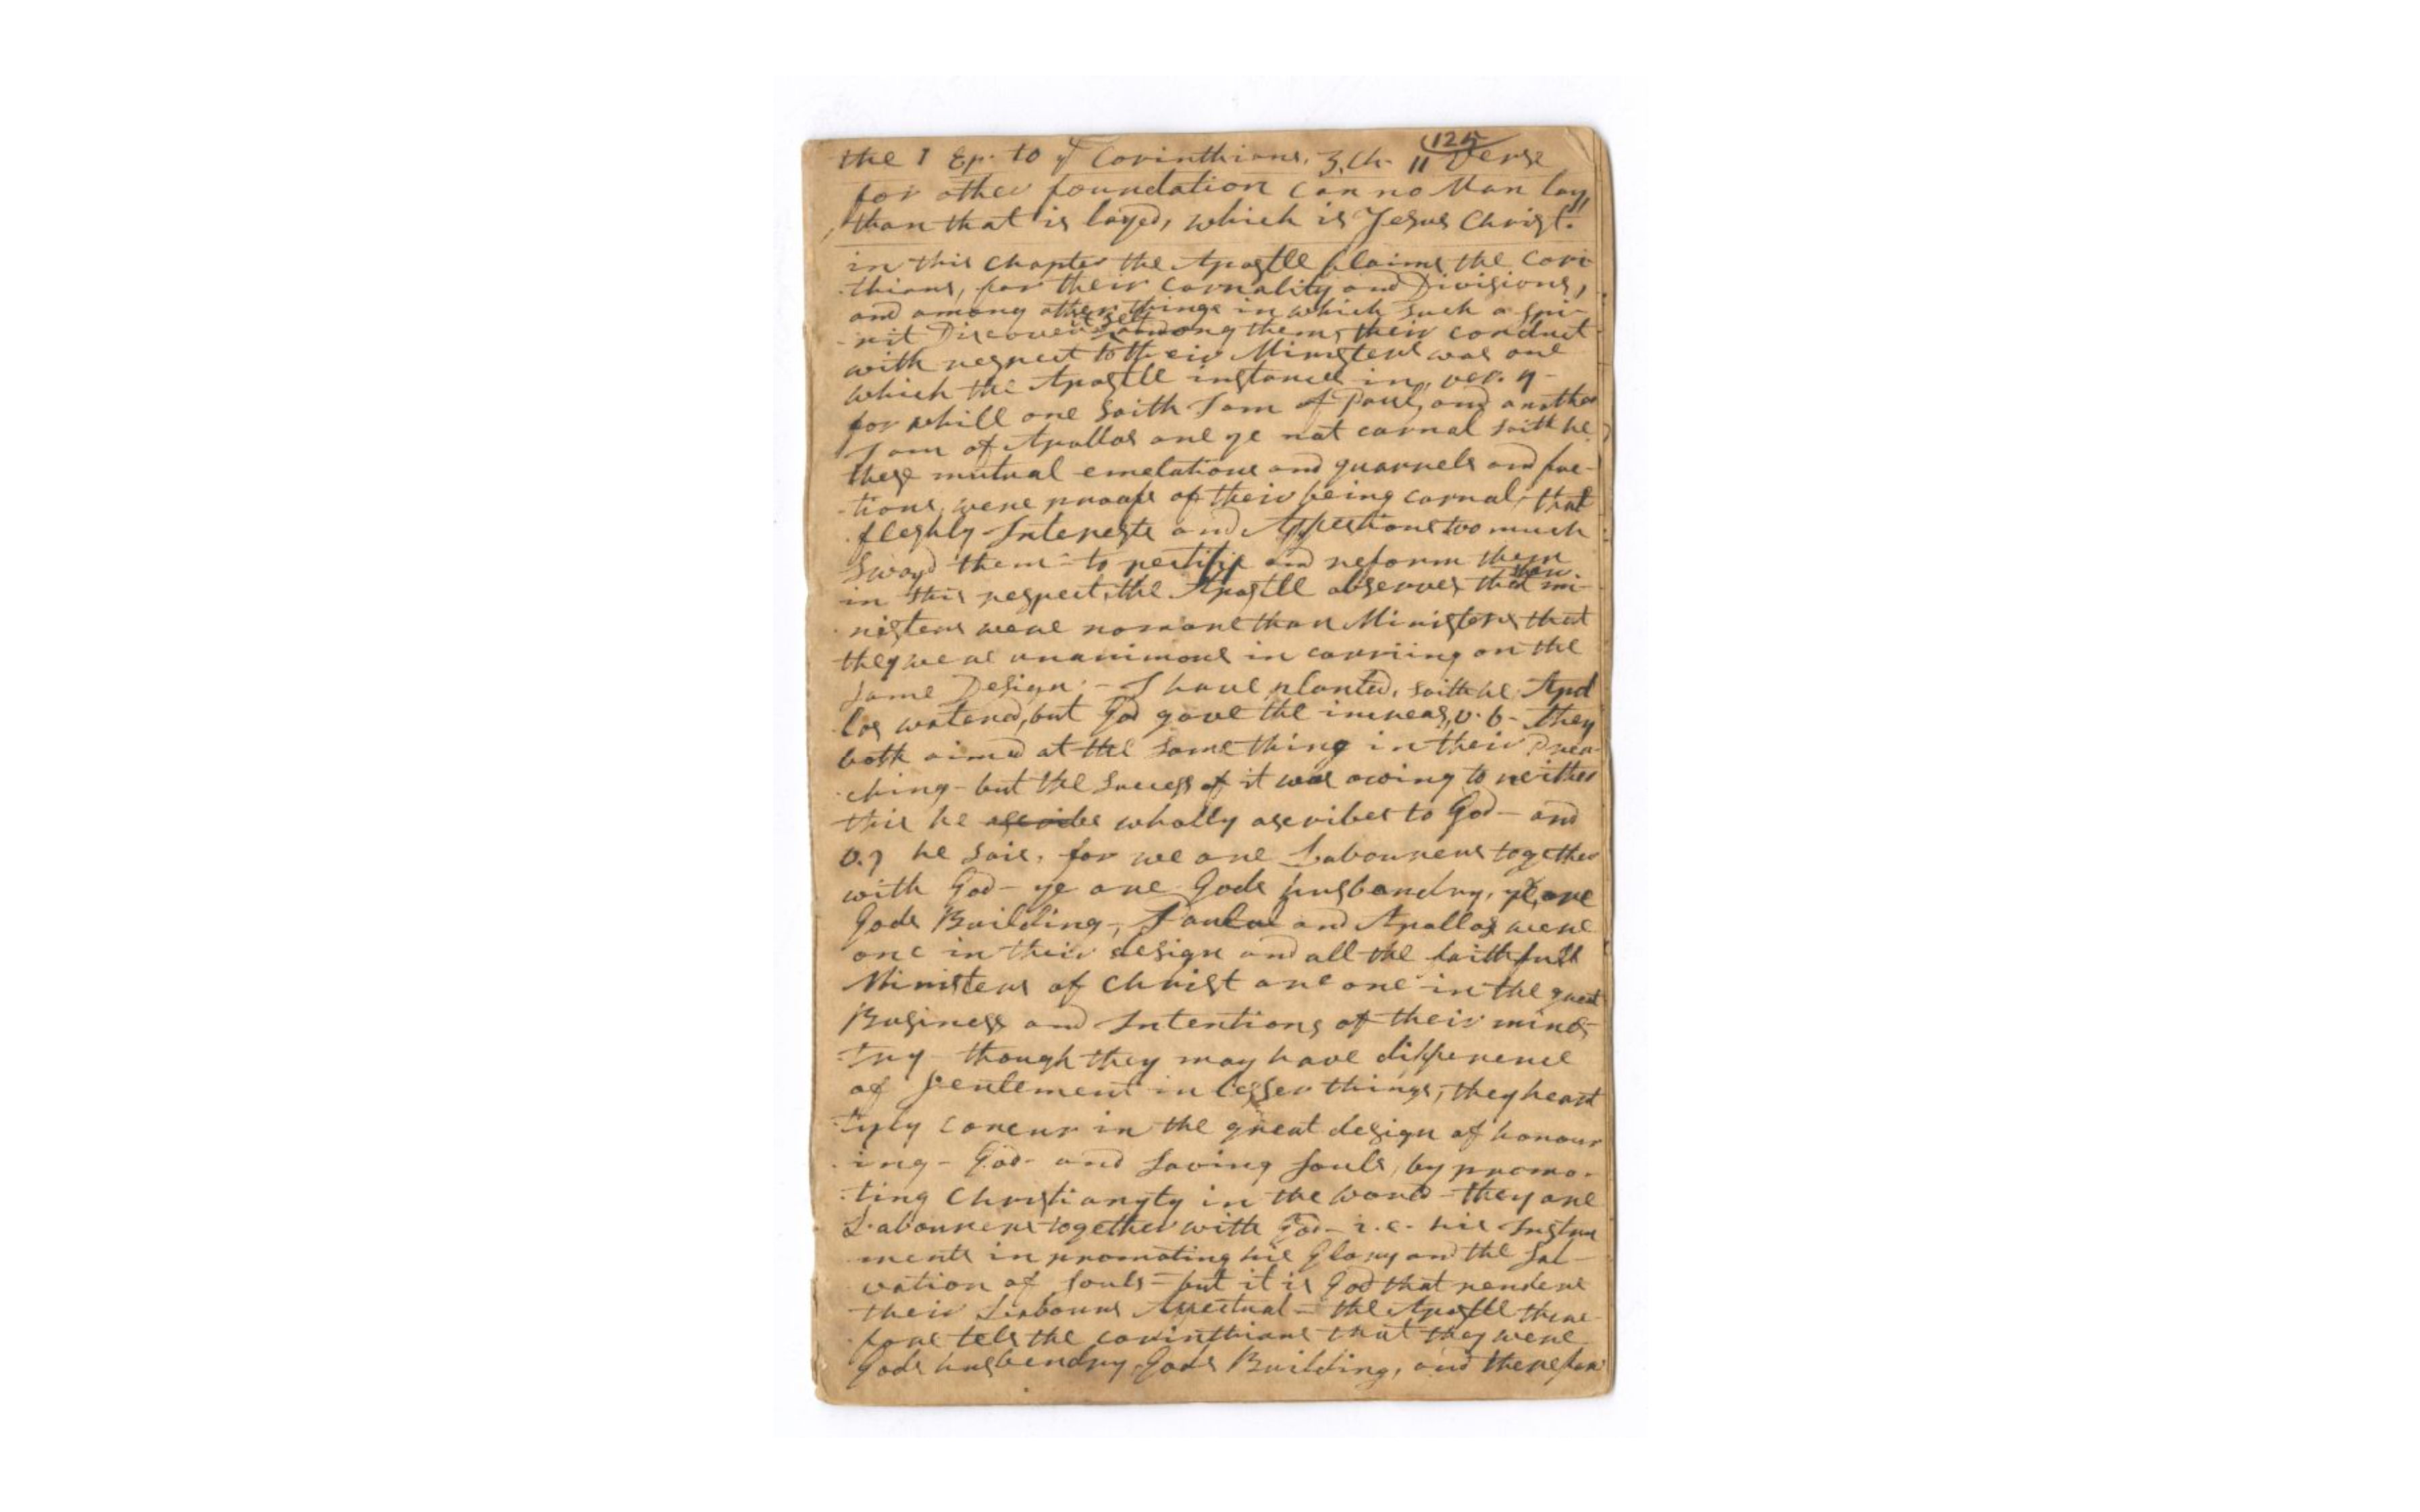 (125
the 1 Ep. to ye Corinthians. 3. Ch. 11 Verse
for other foundation can no Man lay
than that is layed, which is Jesus Christ.
in this chapter the Apostle blaims the Cori
thians, for their Carnality and Divisions,
and among other things in which such a spi-
rit Discovers itself among them, their conduct
with respect to their Ministers was one
which the Apostle instances in, ver. 4-
for while one saith I am of Paul, and another
I am of Apollos are ye not carnal saith he
these mutual emelations and quarrels and fac-
tions, were proofs of their being carnal, that
fleshly Interests and Affections too much
Swayd them - to rectify and reform them
in this respect, the Apostle observes that their mi-
nisters were no more than Ministers that
they were unanimous in carriing on the
same Design; - I have planted, saith he, Apol
los watered, but God gave the increas, v. 6 - they
both aimed at the same thing in their Prea-
ching - but the success of it was owing to neither
this he ascribes wholly ascribes to God - and
v. 9 he sais, for we are Labourers together
with God - ye are Gods husbandry, ye are
Gods Building -, and Apollos were
one in their design and all the faithfull
Ministers of Christ are one in the great
Business and Intentions of their minis
try - though they may have difference
of Sentement in lesser things, they heart
tyly concur in the great design of honour
ing - God - and saving souls, by promo-
ting Christianyty in the world - they are
Labourers together with God - i.e. his Instru
ments in promoting his Glory and the Sal-
vation of souls = but it is God that renders
their Labours Affectual = the Apostle there-
fore tels the corinthians that they were
Gods husbendry, Gods Building, and therefore